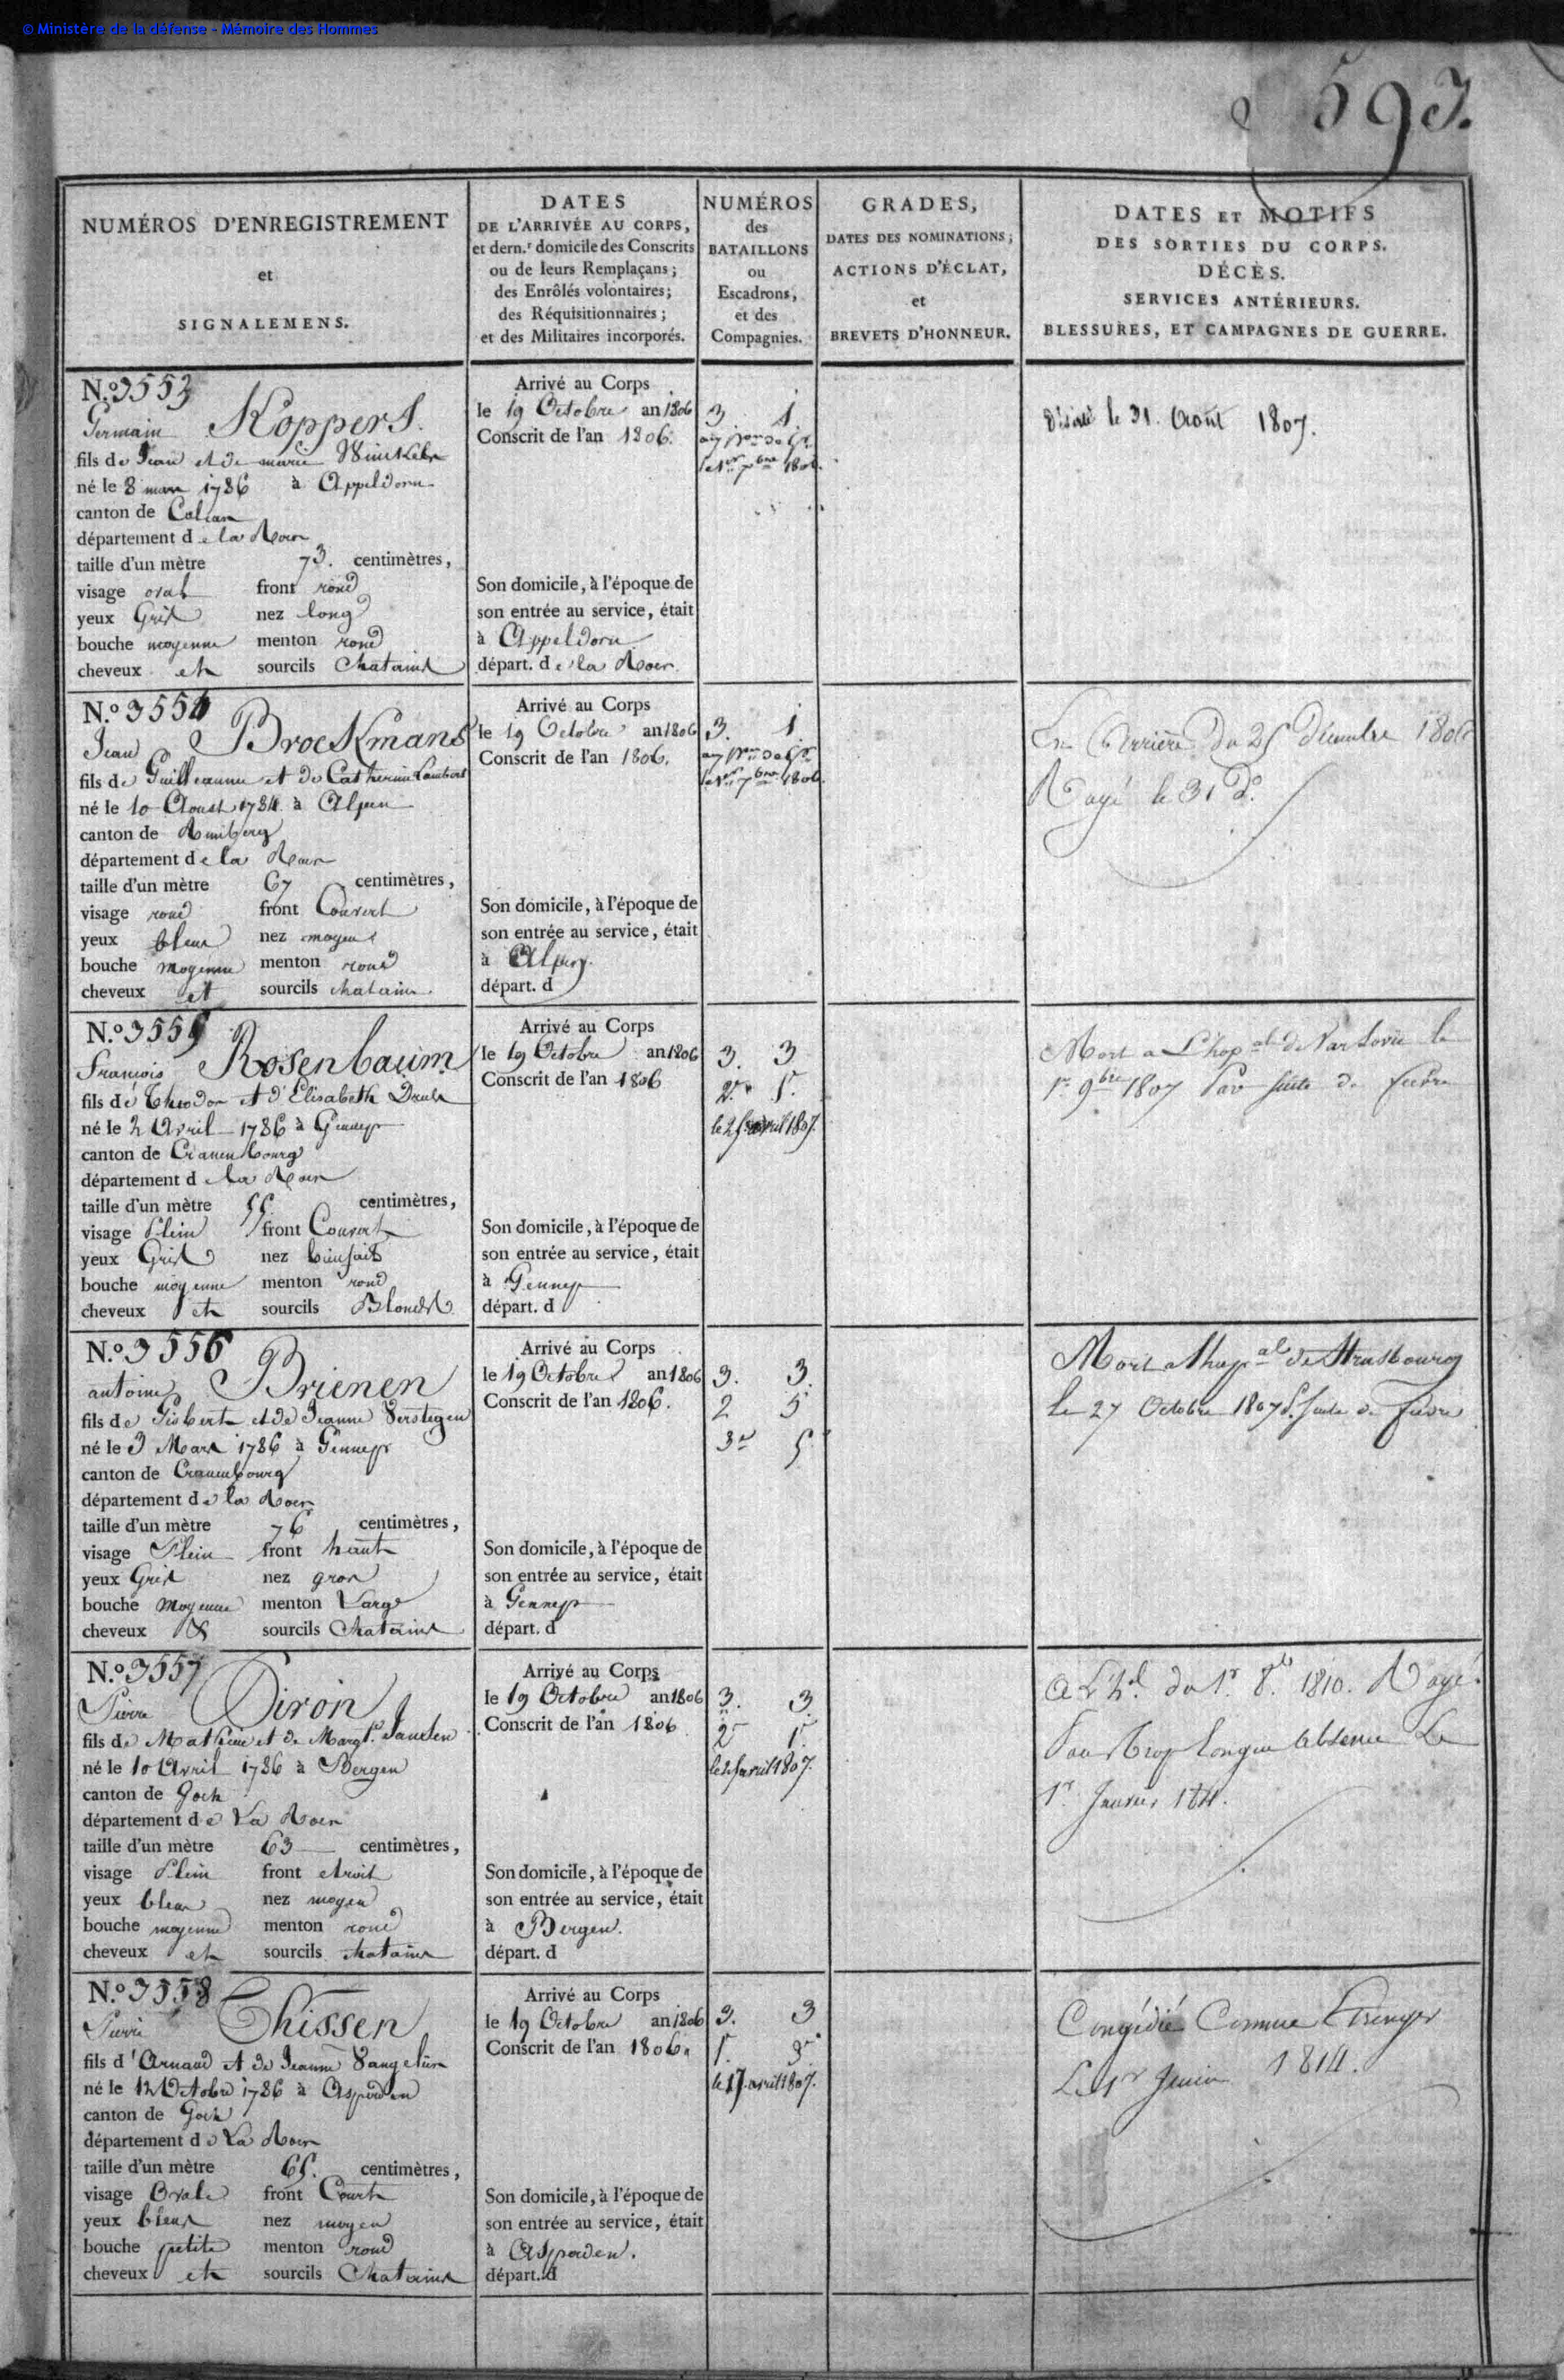 © Ministère de la défense - Mémoire des Hommes
593.
NUMÉROS D'ENREGISTREMENT
et
SIGNALEMENS.
DATES
DE L'ARRIVÉE AU CORPS,
et dern.r domicile des Conscrits
ou de leurs Remplaçans ;
des Enrôlés volontaires;
des Réquisitionnaires ;
et des Militaires incorporés.
NUMÉROS
des
BATAILLONS
ou
Escadrons,
et des
Compagnies.
GRADES,
DATES DES NOMINATIONS ;
ACTIONS D'ÉCLAT,
et
BREVETS D'HONNEUR.
DATES ET MOTIFS
DES SORTIES DU CORPS.
DÉCÈS.
SERVICES ANTÉRIEURS.
BLESSURES, ET CAMPAGNES DE GUERRE.
N.o 3553
Germain Koppers.
fils de Jean et de marie
né le 8 mars 1786 à Appeldorn
canton de Calcar
département de la Roer
taille d'un mètre 73. centimètres,
visage oval front rond
yeux Gris nez long
bouche moyenne menton rond
cheveux et sourcils Chatains
Arrivé au Corps
le 19 Octobre an 1806
Conscrit de l'an 1806.
Son domicile, à l'époque de
son entrée au service, était
à Appeldorn
départ. de la Roer
3 1
7bre 1806.
le 31. Aout 1807.
N.o 3554
Jean Brockmans
fils de Guilleaume et de Catherine Lambert
né le 10 Aoust 1784 à Alpen
canton de Rimberg
département de la Roer
taille d'un mètre 67 centimètres,
visage rond front Couvert
yeux bleus nez moyen
bouche moyenne menton rond
cheveux et sourcils chatains
Arrivé au Corps
le 19 Octobre an 1806
Conscrit de l'an 1806.
Son domicile, à l'époque de
son entrée au service, était
à Alpen.
départ. d
3. 1
7bre 1806.
En arrière du 25 Décembre 1806
Rayé le 31 do.
N.o 3555
François Rosenbaum
fils de Theodor et d'Elisabeth
né le 2 Avril 1786 à Gennep
canton de Cranenbourg
département de la Roer
taille d'un mètre 55 centimètres,
visage Plein front Couvert
yeux Gris nez bienfait
bouche moyenne menton rond
cheveux et sourcils Blonds
Arrivé au Corps
le 19 Octobre an 1806
Conscrit de l'an 1806
Son domicile, à l'époque de
son entrée au service, était
à Gennep
départ. d
3. 3
2e 1r.
le 25 avril 1807.
Mort a L'hopal de Varsovie le
1r 9bre 1807 Par suite de fievre
N.o 3556
antoine Brienen
fils de Gisbert et de Jeanne Verstegen
né le 3 Mars 1786 à Gennep
canton de Cranenbourg
département de la Roer
taille d'un mètre 76 centimètres,
visage Plein front haut
yeux Gris nez gros
bouche moyenne menton Large
cheveux & sourcils Chatains
Arrivé au Corps
le 19 Octobre an 1806
Conscrit de l'an 1806.
Son domicile, à l'époque de
son entrée au service, était
à Gennep
départ. d
3. 3.
2 5
3e 5
Mort a l'hopal de Strasbourg
le 27 Octobre 1807 P. suite de fievre
N.o 3557
Pierre Diron
fils de Mathieu et de Margte. Janssen
né le 10 Avril 1786 à Bergen
canton de Goch
département de La Roer
taille d'un mètre 63 centimètres,
visage Plein front etroit
yeux bleus nez moyen
bouche moyenne menton rond
cheveux et sourcils chatains
Arrivé au Corps
le 19 Octobre an 1806
Conscrit de l'an 1806
Son domicile, à l'époque de
son entrée au service, était
à Bergen.
départ. d
3. 3.
2e 1r.
le 25 avril 1807.
A L'hal. du 1r. 8b. 1810. Rayé
Pour trop longue absence Le
1r. Janvier 1811.
N.o 3558
Pierre Thissen
fils d'Arnaud et de Jeanne
né le 12 Octobre 1786 à Asperden
canton de Goch
département de La Roer
taille d'un mètre 65. centimètres,
visage Ovale front Court
yeux bleus nez moyen
bouche petite menton rond
cheveux et sourcils Chatains
Arrivé au Corps
le 19 Octobre an 1806
Conscrit de l'an 1806.
Son domicile, à l'époque de
son entrée au service, était
à Asperden.
départ. d
3. 3
1r. 3e
le 17. avril 1807.
Congédié Comme Etranger
Le 1r Juin 1814.